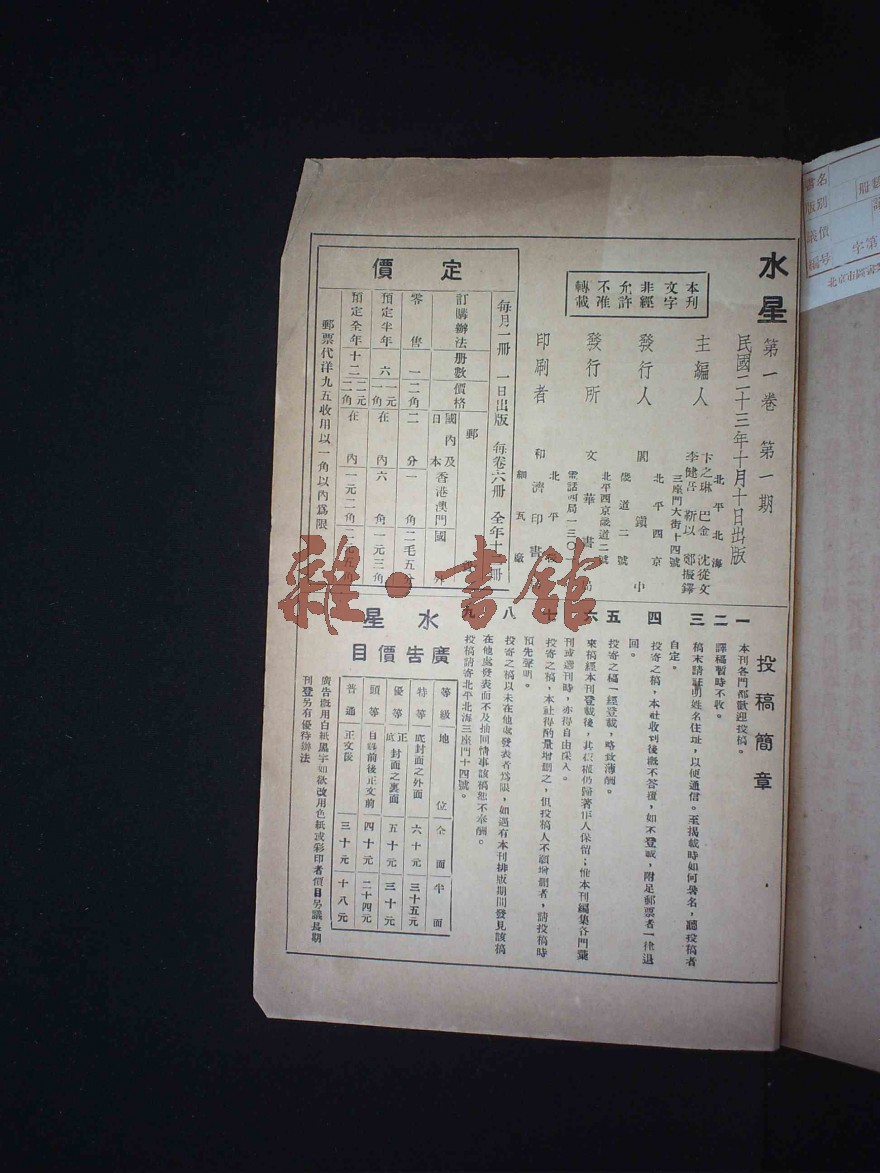 水星
第一卷 第一期
民國二十三年十月十日出版
主編人
卞之琳 巴金 沈從文
李健吾 靳以 鄭振鐸
北平北海
三座門大街十四號
發行人
北平西京
畿道二號
發行所
文華書局
北平西京畿道二號
印刷者
和濟印書
北平
本刊
文字
非經
允許
不准
轉載
每月一冊 一日出版 每卷六冊
定價
訂購辦法 册數 價格 郵
國內及日本 香港澳門 國外
零售 一 二角 二分 一角 二毛五分
預定半年 六 一元一角 在內 六角 一元三角
預定全年 十二 二元二角 在內 一元二角
郵票代洋九五收用以一角以內爲限
投稿簡章
一
本刊各門都歡迎投稿。
二
譯稿暫時不收。
三
稿末請註明姓名住址,以便通信。至揭載時如何署名,聽投稿者
自定。
四
投寄之稿,本社收到後概不答覆,如不登載,附足郵票者一律退
回。
五
投寄之稿一經登載,略致薄酬。
六
來稿經本刊登載後,其版權仍歸著作人保留;惟本刊編集各門彙
刊或選刊時,亦得自由採入。
七
投寄之稿,本社得酌量增刪之,但投稿人不願增刪者,請投稿時
預先聲明。
八
投寄之稿以未在他處發表者爲限,如遇有本刊排版期間發見該稿
在他處發表而不及抽回情事該稿恕不奉酬。
九
投稿請寄北平北海三座門十四號。
水星
廣告價目
等級 地位 全面 半面
特等 底封面之外面 六十元 三十五元
優等 正底封面之裏面 五十元 三十元
頭等 目錄前後正文前 四十元 二十四元
普通 正文後 三十元 十八元
廣告概用白紙黑字如欲改用色紙或彩印者價目另議長期
刊登另有優待辦法
雜·書館
書名
版別
冊
價
編号
字第